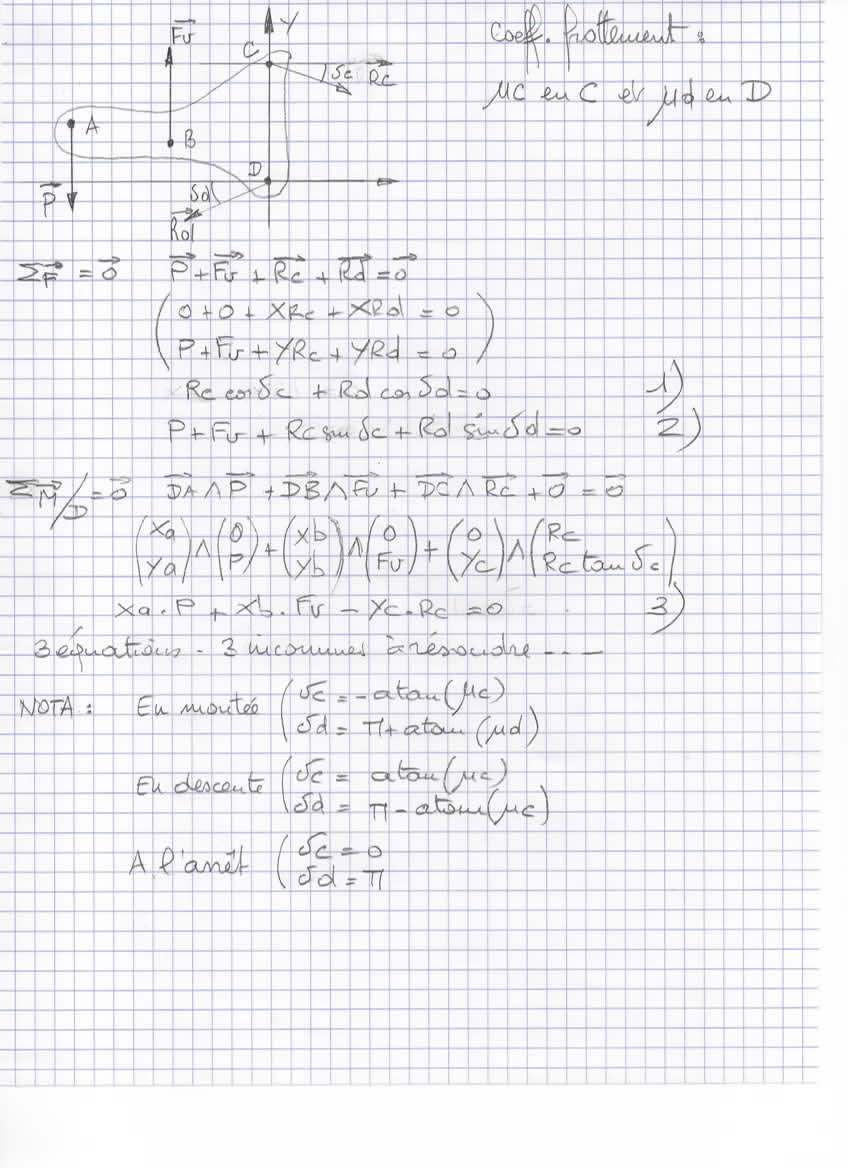 Coeff. frottement :
μC en C et μd en D
Fv
Y
C
δc
Rc
A
B
D
P
δd
Rd
ΣF = 0 P + Fv + Rc + Rd = 0
( 0 + 0 + XRc + XRd = 0
P + Fv + YRc + YRd = 0 )
Rc cos δc + Rd cos δd = 0 1)
P + Fv + Rc sin δc + Rd sin δd = 0 2)
ΣM/D = 0 DA ∧ P + DB ∧ Fv + DC ∧ Rc + 0 = 0
(Xa Ya) ∧ (0 P) + (Xb Yb) ∧ (0 Fv) + (0 Yc) ∧ (Rc Rc tan δc)
Xa . P + Xb . Fv - Yc . Rc = 0 3)
3 équations - 3 inconnues à résoudre ----
NOTA : En montée ( δc = - atan (μc)
δd = π + atan (μd)
En descente ( δc = atan (μc)
δd = π - atan (μc)
A l'arrêt ( δc = 0
δd = π